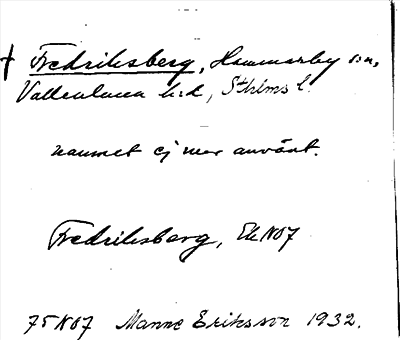 † Fredriksberg, Hammarby sn,
Vallentuna hd, Sthlms l.
namnet ej mer använt.
Fredriksberg, Ek N07
75 N07 Manne Eriksson 1932.